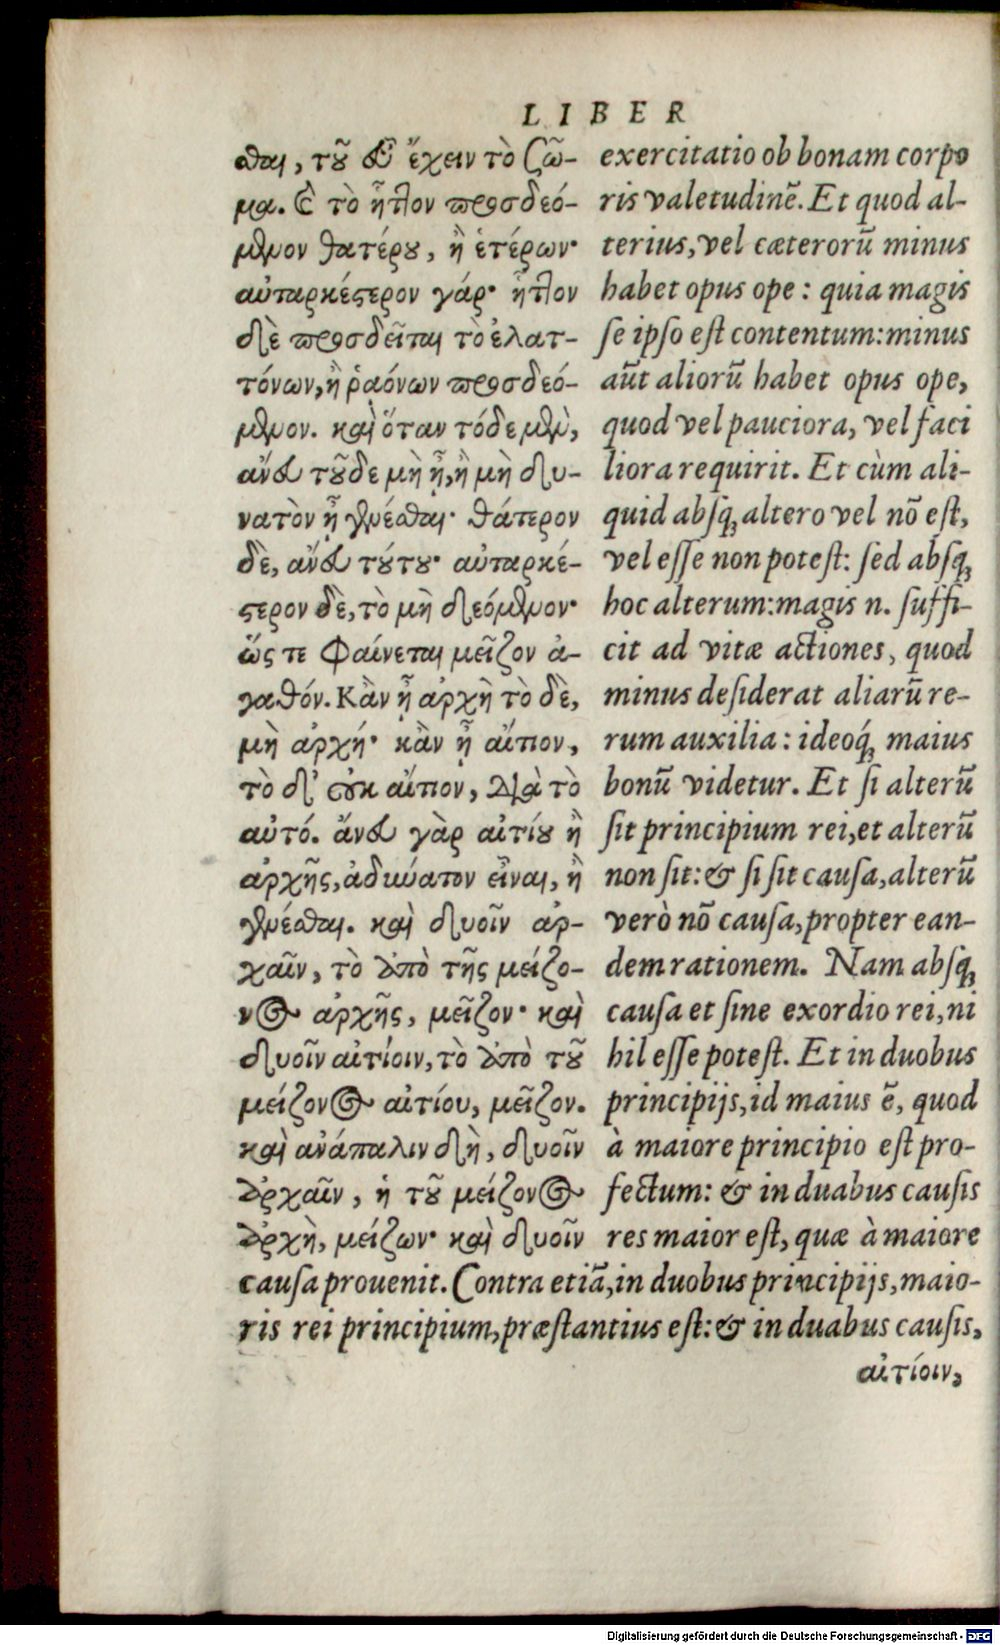 LIBER
σθαι, τοῦ εὖ ἔχειν τὸ σῶ-
μα. καὶ τὸ ἧττον προσδεό-
μενον θατέρου, ἢ ἑτέρων·
αὐταρκέστερον γάρ· ἧττον
δὲ προσδεῖται τὸ ἐλατ-
τόνων, ἢ ῥαόνων προσδεό-
μενον. καὶ ὅταν τόδε μὲν,
ἄνευ τοῦδε μὴ ᾖ, ἢ μὴ δυ-
νατὸν ᾖ γενέσθαι· θάτερον
δὲ, ἄνευ τούτου· αὐταρκέ-
στερον δὲ, τὸ μὴ δεόμενον·
ὥς τε φαίνεται μεῖζον ἀ-
γαθόν. Κἂν ᾖ ἀρχὴ τὸ δὲ,
μὴ ἀρχή· κἂν ᾖ αἴτιον,
τὸ δ' οὐκ αἴτιον, διὰ τὸ
αὐτό. ἄνευ γὰρ αἰτίου ἢ
ἀρχῆς, ἀδύνατον εἶναι, ἢ
γενέσθαι. καὶ δυοῖν ἀρ-
χαῖν, τὸ ἀπὸ τῆς μείζο-
νος ἀρχῆς, μεῖζον· καὶ
δυοῖν αἰτίοιν, τὸ ἀπὸ τοῦ
μείζονος αἰτίου, μεῖζον.
καὶ ἀνάπαλιν δὴ, δυοῖν
ἀρχαῖν, ἡ τοῦ μείζονος
ἀρχὴ, μείζων· καὶ δυοῖν
exercitatio ob bonam corpo
ris valetudinē. Et quod al-
terius, vel cæterorū minus
habet opus ope: quia magis
se ipso est contentum: minus
aūt aliorū habet opus ope,
quod vel pauciora, vel faci
liora requirit. Et cùm ali-
quid absq; altero vel nō est,
vel esse non potest: sed absq;
hoc alterum: magis n. suffi-
cit ad vitæ actiones, quod
minus desiderat aliarū re-
rum auxilia: ideoq́; maius
bonū videtur. Et si alterū
sit principium rei, et alterū
non sit: & si sit causa, alterū
verò nō causa, propter ean-
dem rationem. Nam absq;
causa et sine exordio rei, ni
hil esse potest. Et in duobus
principijs, id maius ē, quod
à maiore principio est pro-
fectum: & in duabus causis
res maior est, quæ à maiore
causa prouenit. Contra etiā, in duobus principijs, maio-
ris rei principium, præstantius est: & in duabus causis,
αἰτίοιν,
Digitalisierung gefördert durch die Deutsche Forschungsgemeinschaft - DFG